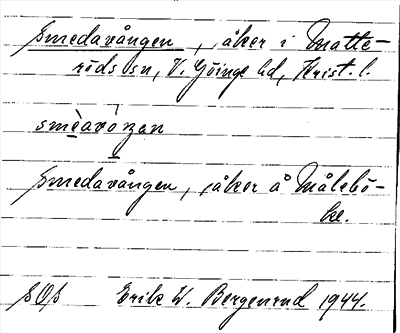 Smedavången, åker i Matte-
röds sn, V. Göinge hd, Krist. l.
smèavòŋen
Smedavången, åker å Målebö-
ke.
SOÞ Erik W. Bergenrud 1944.